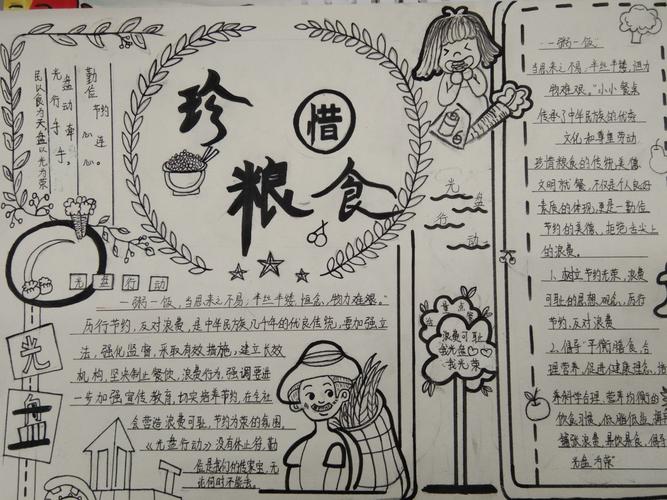 珍惜
粮食
勤俭节约心连心。
光盘行动牵手手,
民以食为天盘以光为荣
光盘行动
一粥一饭,当思来之不易,半丝半缕,恒念,物力难艰。"
厉行节约,反对浪费,是中华民族几千年的优良传统,要加强立
法,强化监督,采取有效措施,建立长效
机构,坚决制止餐饮,浪费行为,强调要进
一步加强宣传教育,切实培养节约,在全社
会营造浪费可耻,节约为荣的氛围。
《光盘行动》没有休止符,勤
俭是我们的传家宝,无
论何时不能丢。
光盘
光盘
行动
浪费可耻
我光盘
我光荣
一粥一饭,
当思来之不易,半丝半缕,恒力
物难艰。"小小餐桌
传承了中华民族的优秀
文化和尊重劳动
珍惜粮食的传统美德
文明就餐,不仅是个人良好
素质的体现,更是一勤俭
节约的美德,拒绝舌尖上
的浪费。
1.树立节约光荣,浪费
可耻的思想观念,厉行
节约,反对浪费
2.倡导"平衡膳食,合
理营养,促进健康理念,
养科学合理,营养均衡的
饮食习惯,低脂低盐,
铺张浪费,暴饮暴食,倡导
光盘为荣"